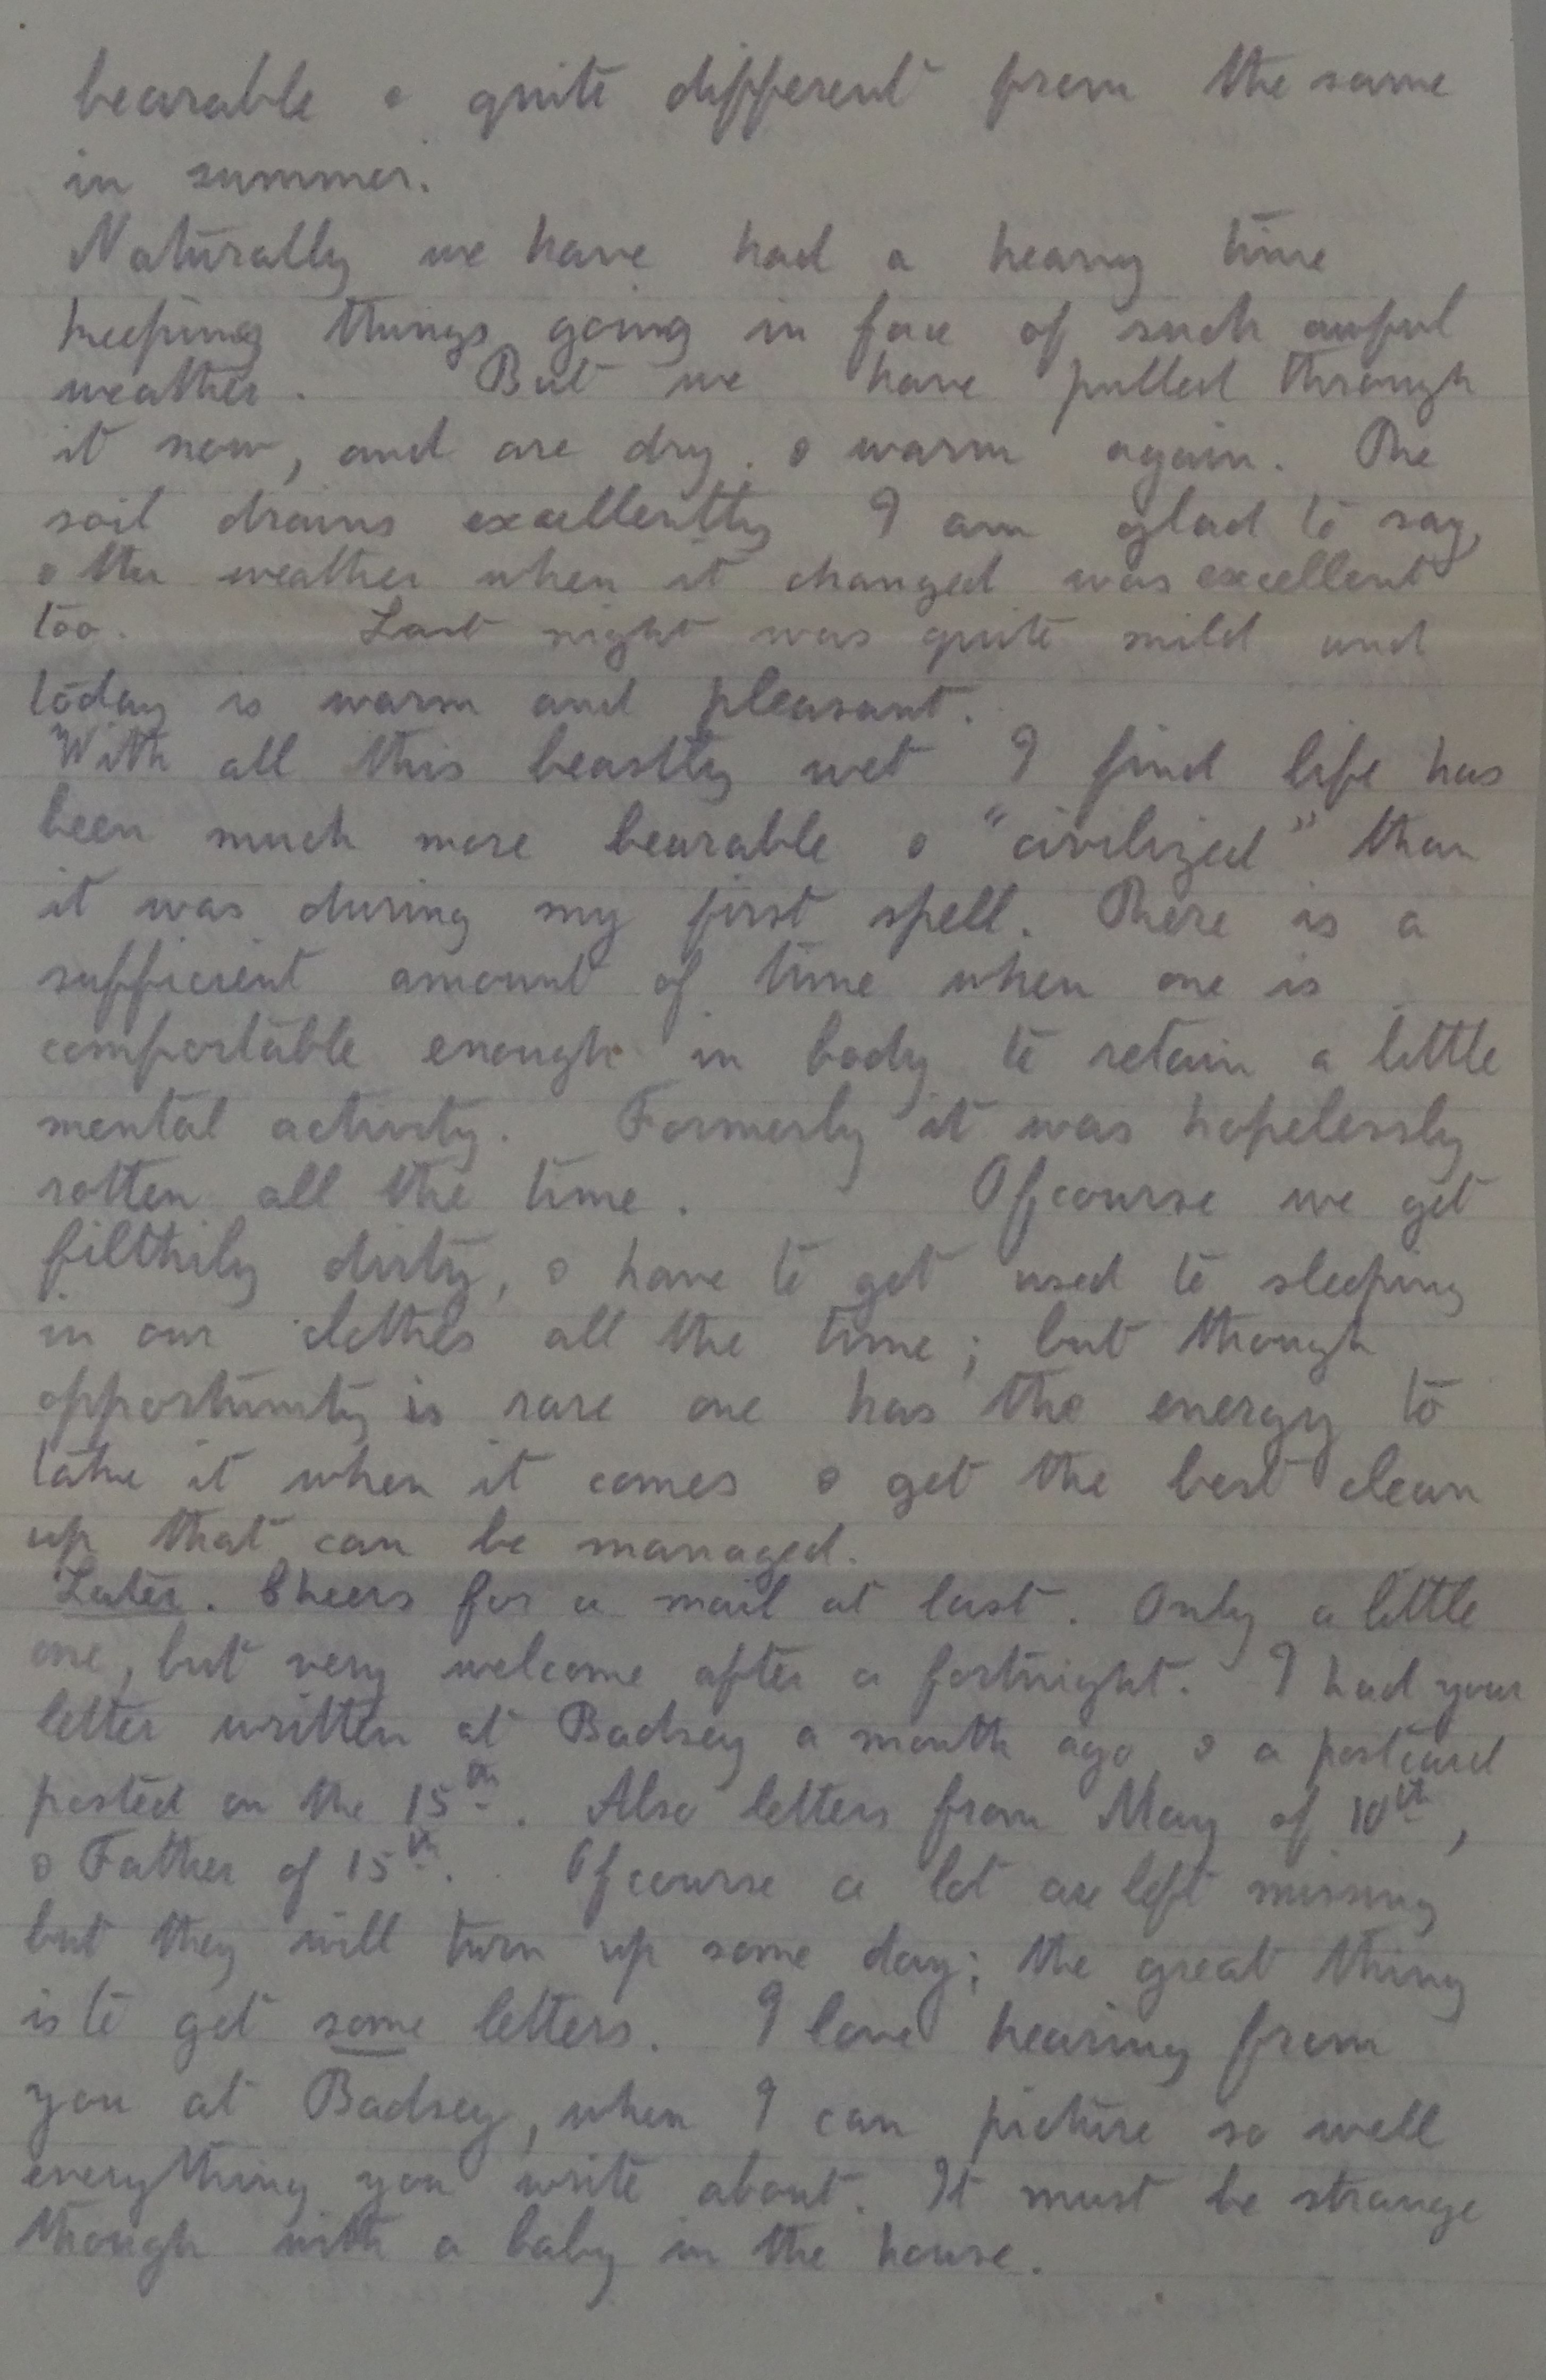 bearable & quite different from the same
in summer.
Naturally we have had a heavy time
keeping things going in face of such awful
weather. But we have pulled through
it now, and are dry & warm again. The
soil drains excellently I am glad to say,
& the weather when it changed was excellent
too. Last night was quite mild and
today is warm and pleasant.
With all this beastly wet I find life has
been much more bearable & "civilized" than
it was during my first spell. There is a
sufficient amount of time when one is
comfortable enough in body to retain a little
mental activity. Formerly it was hopelessly
rotten all the time. Ofcourse we get
filthily dirty, & have to get used to sleeping
in our clothes all the time; but though
opportunity is rare one has the energy to
take it when it comes & get the best clean
up that can be managed.
Later. Cheers for a mail at last. Only a little
one, but very welcome after a fortnight. I had your
letter written at Badsey a month ago & a postcard
posted on the 15th. Also letters from May of 10th,
& Father of 15th. Ofcourse a lot are left missing
but they will turn up some day; the great thing
is to get some letters. I love hearing from
you at Badsey, when I can picture so well
everything you write about. It must be strange
though with a baby in the house.